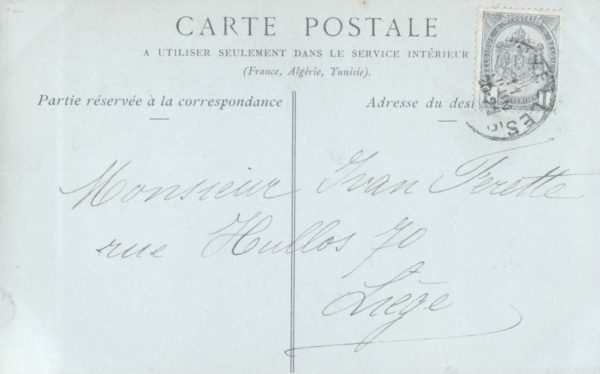 CARTE POSTALE
A UTILISER SEULEMENT DANS LE SERVICE INTÉRIEUR
(France, Algérie, Tunisie).
Partie réservée à la correspondance
Adresse du des
Monsieur Ivan Ferette
rue Hullos 70
Liège